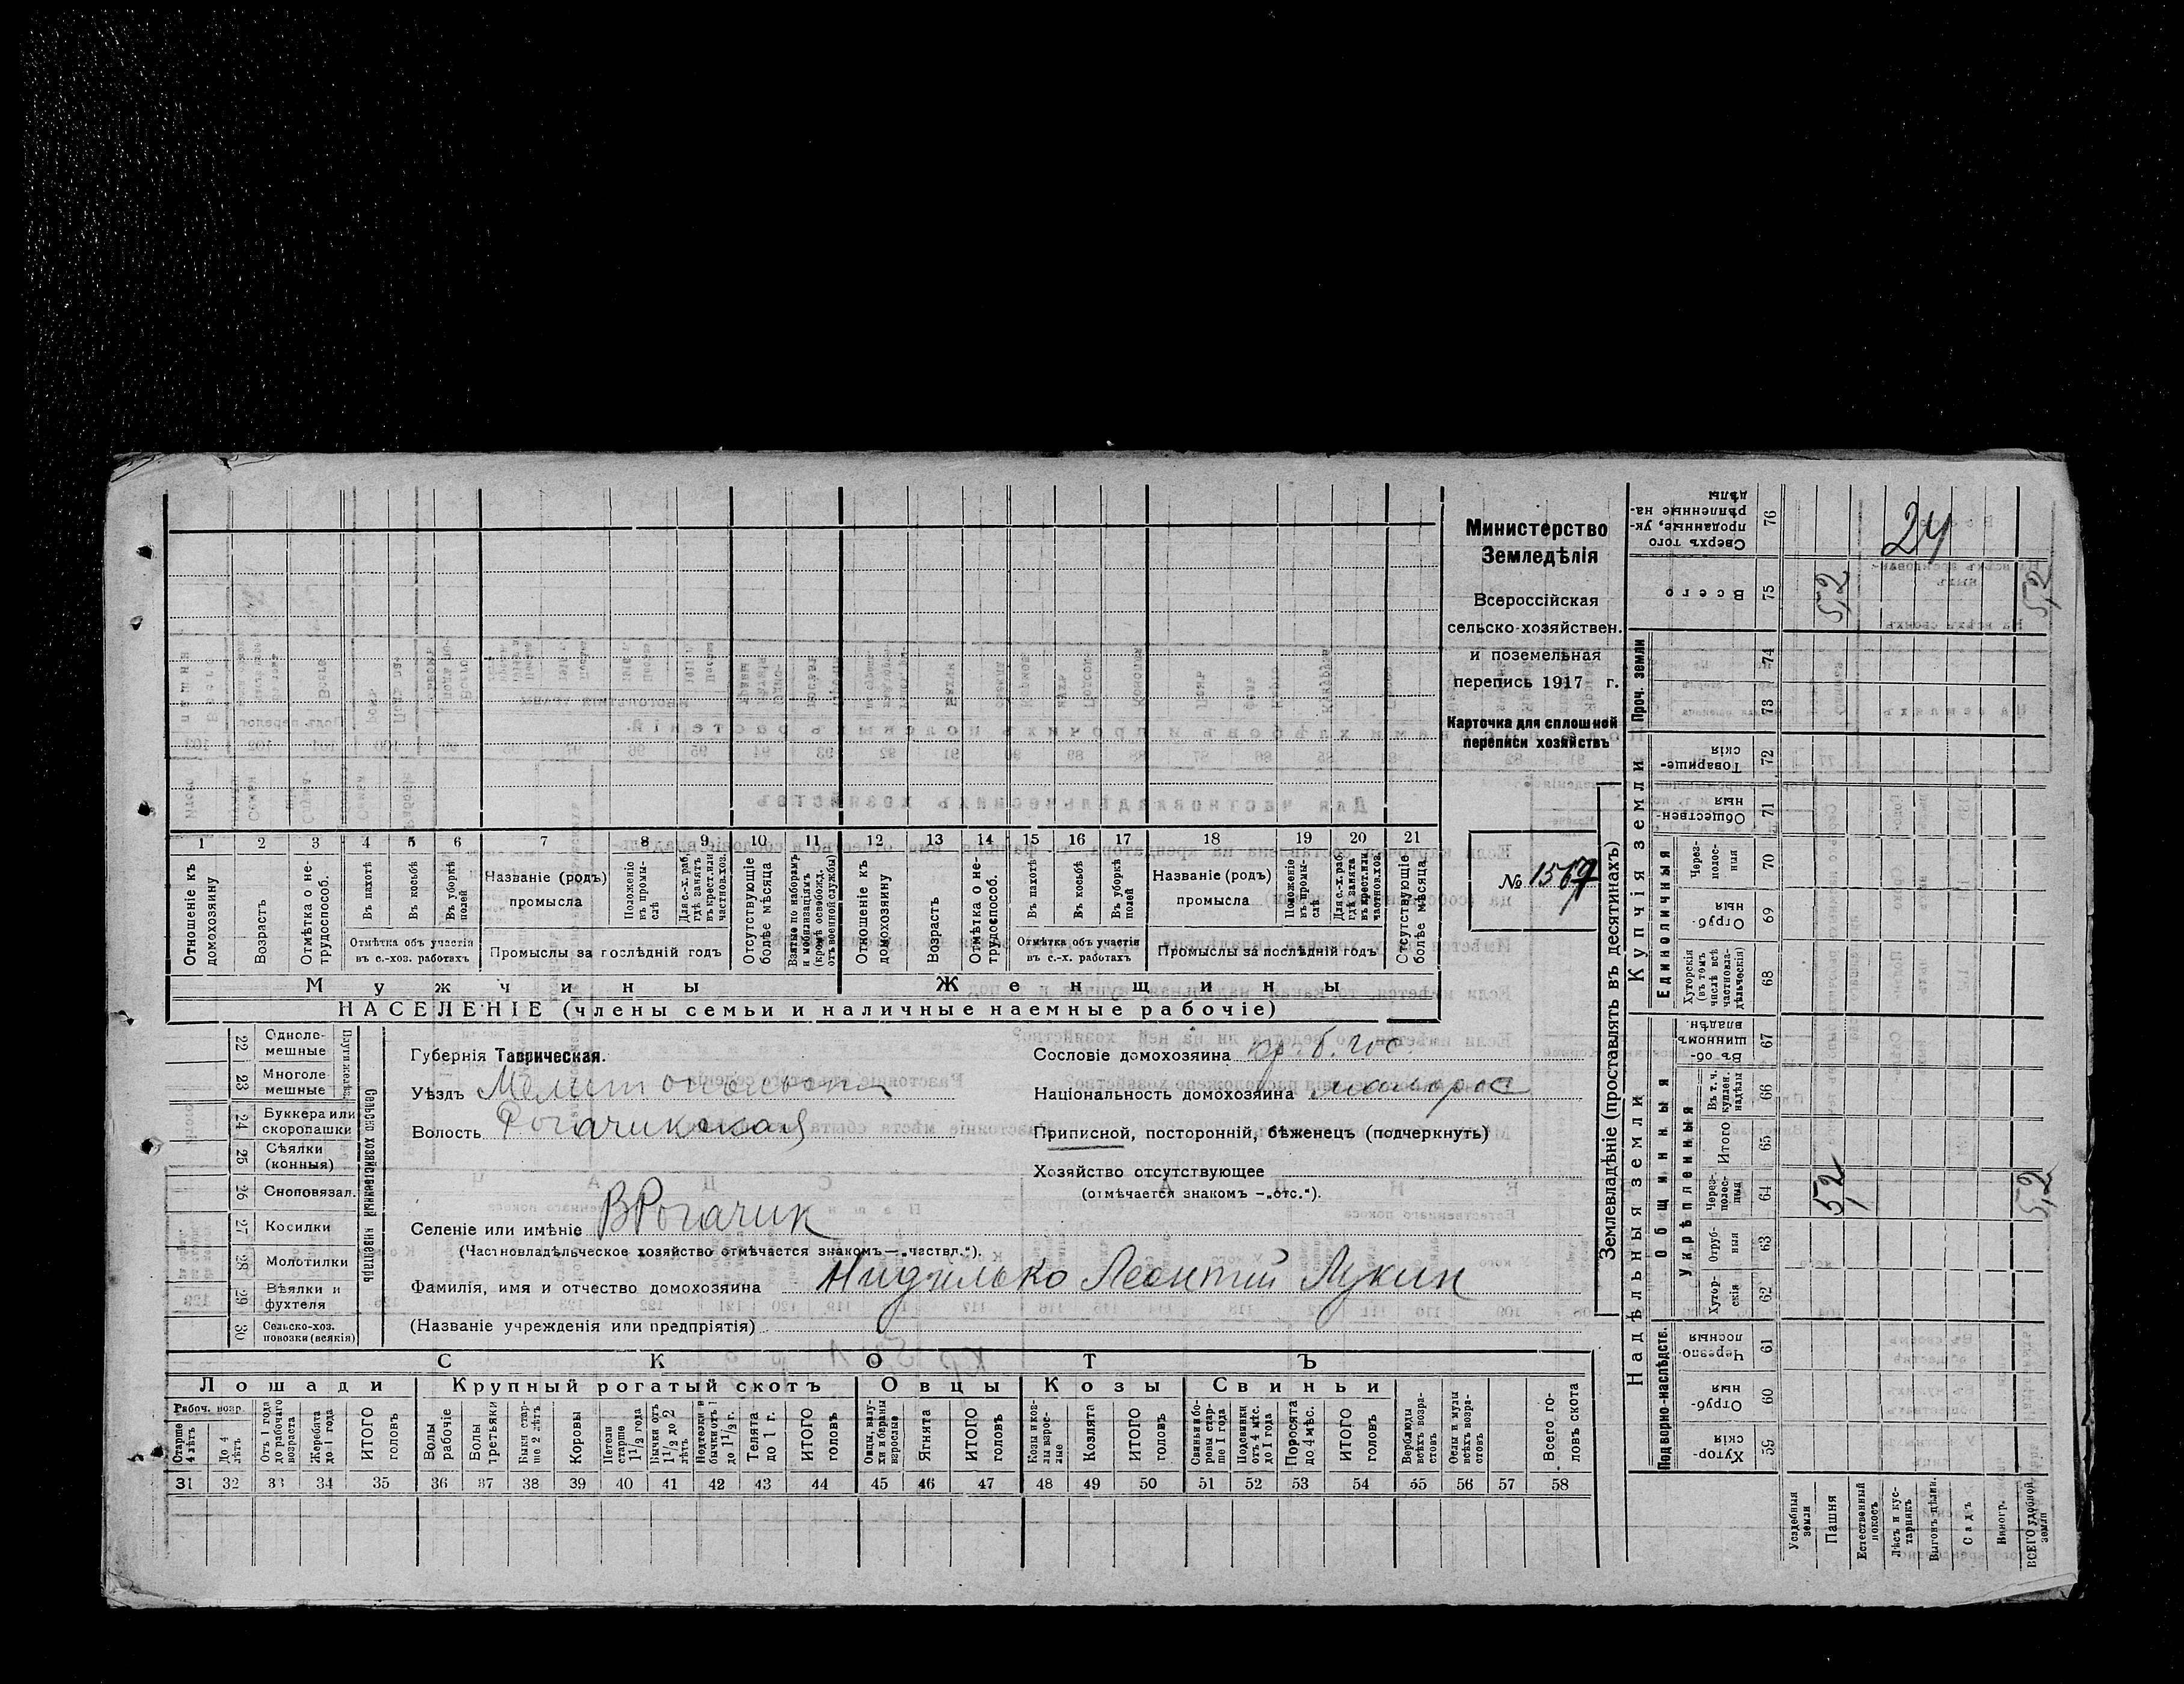 Министерство
Земледѣлія
Всероссійская
сельско-хозяйствен.
и поземельная
перепись 1917 г.
Карточка для сплошной
переписи хозяйствъ
№ 1567
1 2 3 4 5 6 7 8 9 10 11 12 13 14 15 16 17 18 19 20 21
Отношеніе къ домохозяину
Возрастъ
Отмѣтка о не-трудоспособ.
Въ пахотѣ
Въ косьбѣ
Въ уборкѣ полей
Отмѣтка объ участіи въ с.-хоз. работахъ
Названіе (родъ) промысла
Положеніе въ промы-слѣ
Для с.-х. раб. гдѣ занятъ въ крест. или частнов. хоз.
Промыслы за послѣдній годъ
Отсутствующіе болѣе мѣсяца
Взятые по наборамъ и мобилизаціямъ (кромѣ освобожд. отъ военной службы)
Отношеніе къ домохозяину
Возрастъ
Отмѣтка о не-трудоспособ.
Въ пахотѣ
Въ косьбѣ
Въ уборкѣ полей
Отмѣтка объ участіи въ с.-х. работахъ
Названіе (родъ) промысла
Положеніе въ промы-слѣ
Для с.-х. раб. гдѣ занята въ крест. или частнов. хоз.
Промыслы за послѣдній годъ
Отсутствующіе болѣе мѣсяца
Мужчины Женщины
НАСЕЛЕНІЕ (члены семьи и наличные наемные рабочіе)
22 Одноле-мешные
23 Многоле-мешные
24 Буккера или скоропашки
25 Сѣялки (конныя)
26 Сноповязал.
27 Косилки
28 Молотилки
29 Вѣялки и фухтеля
30 Сельско-хоз. повозки (всякія)
Сельско хозяйственный инвентарь
Губернія Таврическая.
Уѣздъ Мелитопольскій
Волость Рогачикская
Селеніе или имѣніе В Рогачик
(Частновладѣльческое хозяйство отмѣчается знакомъ—„частвл.“).
Фамилія, имя и отчество домохозяина Нидилько Леонтий Лукин
(Названіе учрежденія или предпріятія)
Сословіе домохозяина кр. б. гос.
Національность домохозяина малорос
Приписной, посторонній, бѣженецъ (подчеркнуть)
Хозяйство отсутствующее
(отмѣчается знакомъ —„отс.“).
СКОТЪ
Лошади Крупный рогатый скотъ Овцы Козы Свиньи
Рабоч. возр.
Старше 4 лѣтъ
До 4 лѣтъ
Отъ 1 года до рабочаго возраста
Жеребята до 1 года
ИТОГО головъ
Волы рабочіе
Волы третьяки
Быки стар-ше 2 лѣтъ
Коровы
Нетели старше 1½ года
Бычки отъ 1½ до 2 лѣтъ
Подтелки и бычки отъ 1 до 1½ г.
Телята до 1 г.
ИТОГО головъ
Овцы, валу-хи и бараны взрослые
Ягнята
ИТОГО головъ
Козы и коз-лы взрос-лые
Козлята
ИТОГО головъ
Свиньи и бо-ровы стар-ше 1 года
Подсвинки отъ 4 мѣс. до 1 года
Поросята до 4 мѣс.
ИТОГО головъ
Верблюды всѣхъ возра-стовъ
Ослы и мулы всѣхъ возра-стовъ
Всего го-ловъ скота
31 32 33 34 35 36 37 38 39 40 41 42 43 44 45 46 47 48 49 50 51 52 53 54 55 56 57 58
Землевладѣніе (проставлять въ десятинахъ)
Надѣльныя земли Купчія земли
Подворно-наслѣдств.
Общинныя
Укрѣпленныя
Единоличныя
Проч. земли
59 Хутор-скія
60 Отруб-ныя
61 Черезпо-лосныя
62 Хутор-скія
63 Отруб-ныя
64 Через-полос-ныя
65 Итого
66 Въ т. ч. куплен. надѣлы
67 Въ об-щинномъ владѣн.
68 Хуторскія (въ томъ числѣ всѣ частновла-дѣльческія)
69 Отруб-ныя
70 Через-полос-ныя
71 Обществен-ныя
72 Товарище-скія
73
74
75 Всего
76 Сверхъ того проданные, ук-рѣпленные на-дѣлы
Усадебныя земли
Пашня
Естественный покосъ
Лѣсъ и кус-тарникъ
Выгонъ-цѣлин.
Садъ
Виногр.
ВСЕГО удобной земли
5,2
5,2
5,2
5,2
24